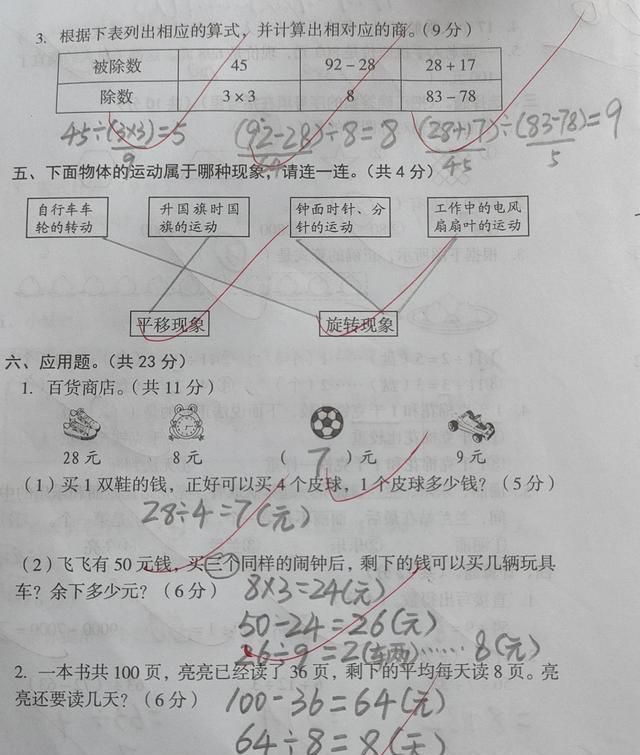 3. 根据下表列出相应的算式，并计算出相对应的商。（9 分）
被除数 45 92－28 28＋17
除数 3×3 8 83－78
45÷(3×3)=5 (92-28)÷8=8 (28+17)÷(83-78)=9
9 64 45 5
五、下面物体的运动属于哪种现象，请连一连。（共 4 分）
自行车车 升国旗时国 钟面时针、分 工作中的电风
轮的转动 旗的运动 针的运动 扇扇叶的运动
平移现象 旋转现象
六、应用题。（共 23 分）
1. 百货商店。（共 11 分）
28 元 8 元 （ 7 ）元 9 元
（1）买 1 双鞋的钱，正好可以买 4 个皮球，1 个皮球多少钱？（5 分）
28÷4=7(元)
（2）飞飞有 50 元钱，买三个同样的闹钟后，剩下的钱可以买几辆玩具
车？余下多少元？（6 分） 8×3=24(元)
50-24=26(元)
26÷9=2(辆)……8(元)
2. 一本书共 100 页，亮亮已经读了 36 页，剩下的平均每天读 8 页。亮
亮还要读几天？（6 分） 100-36=64(元)
64÷8=8(天)